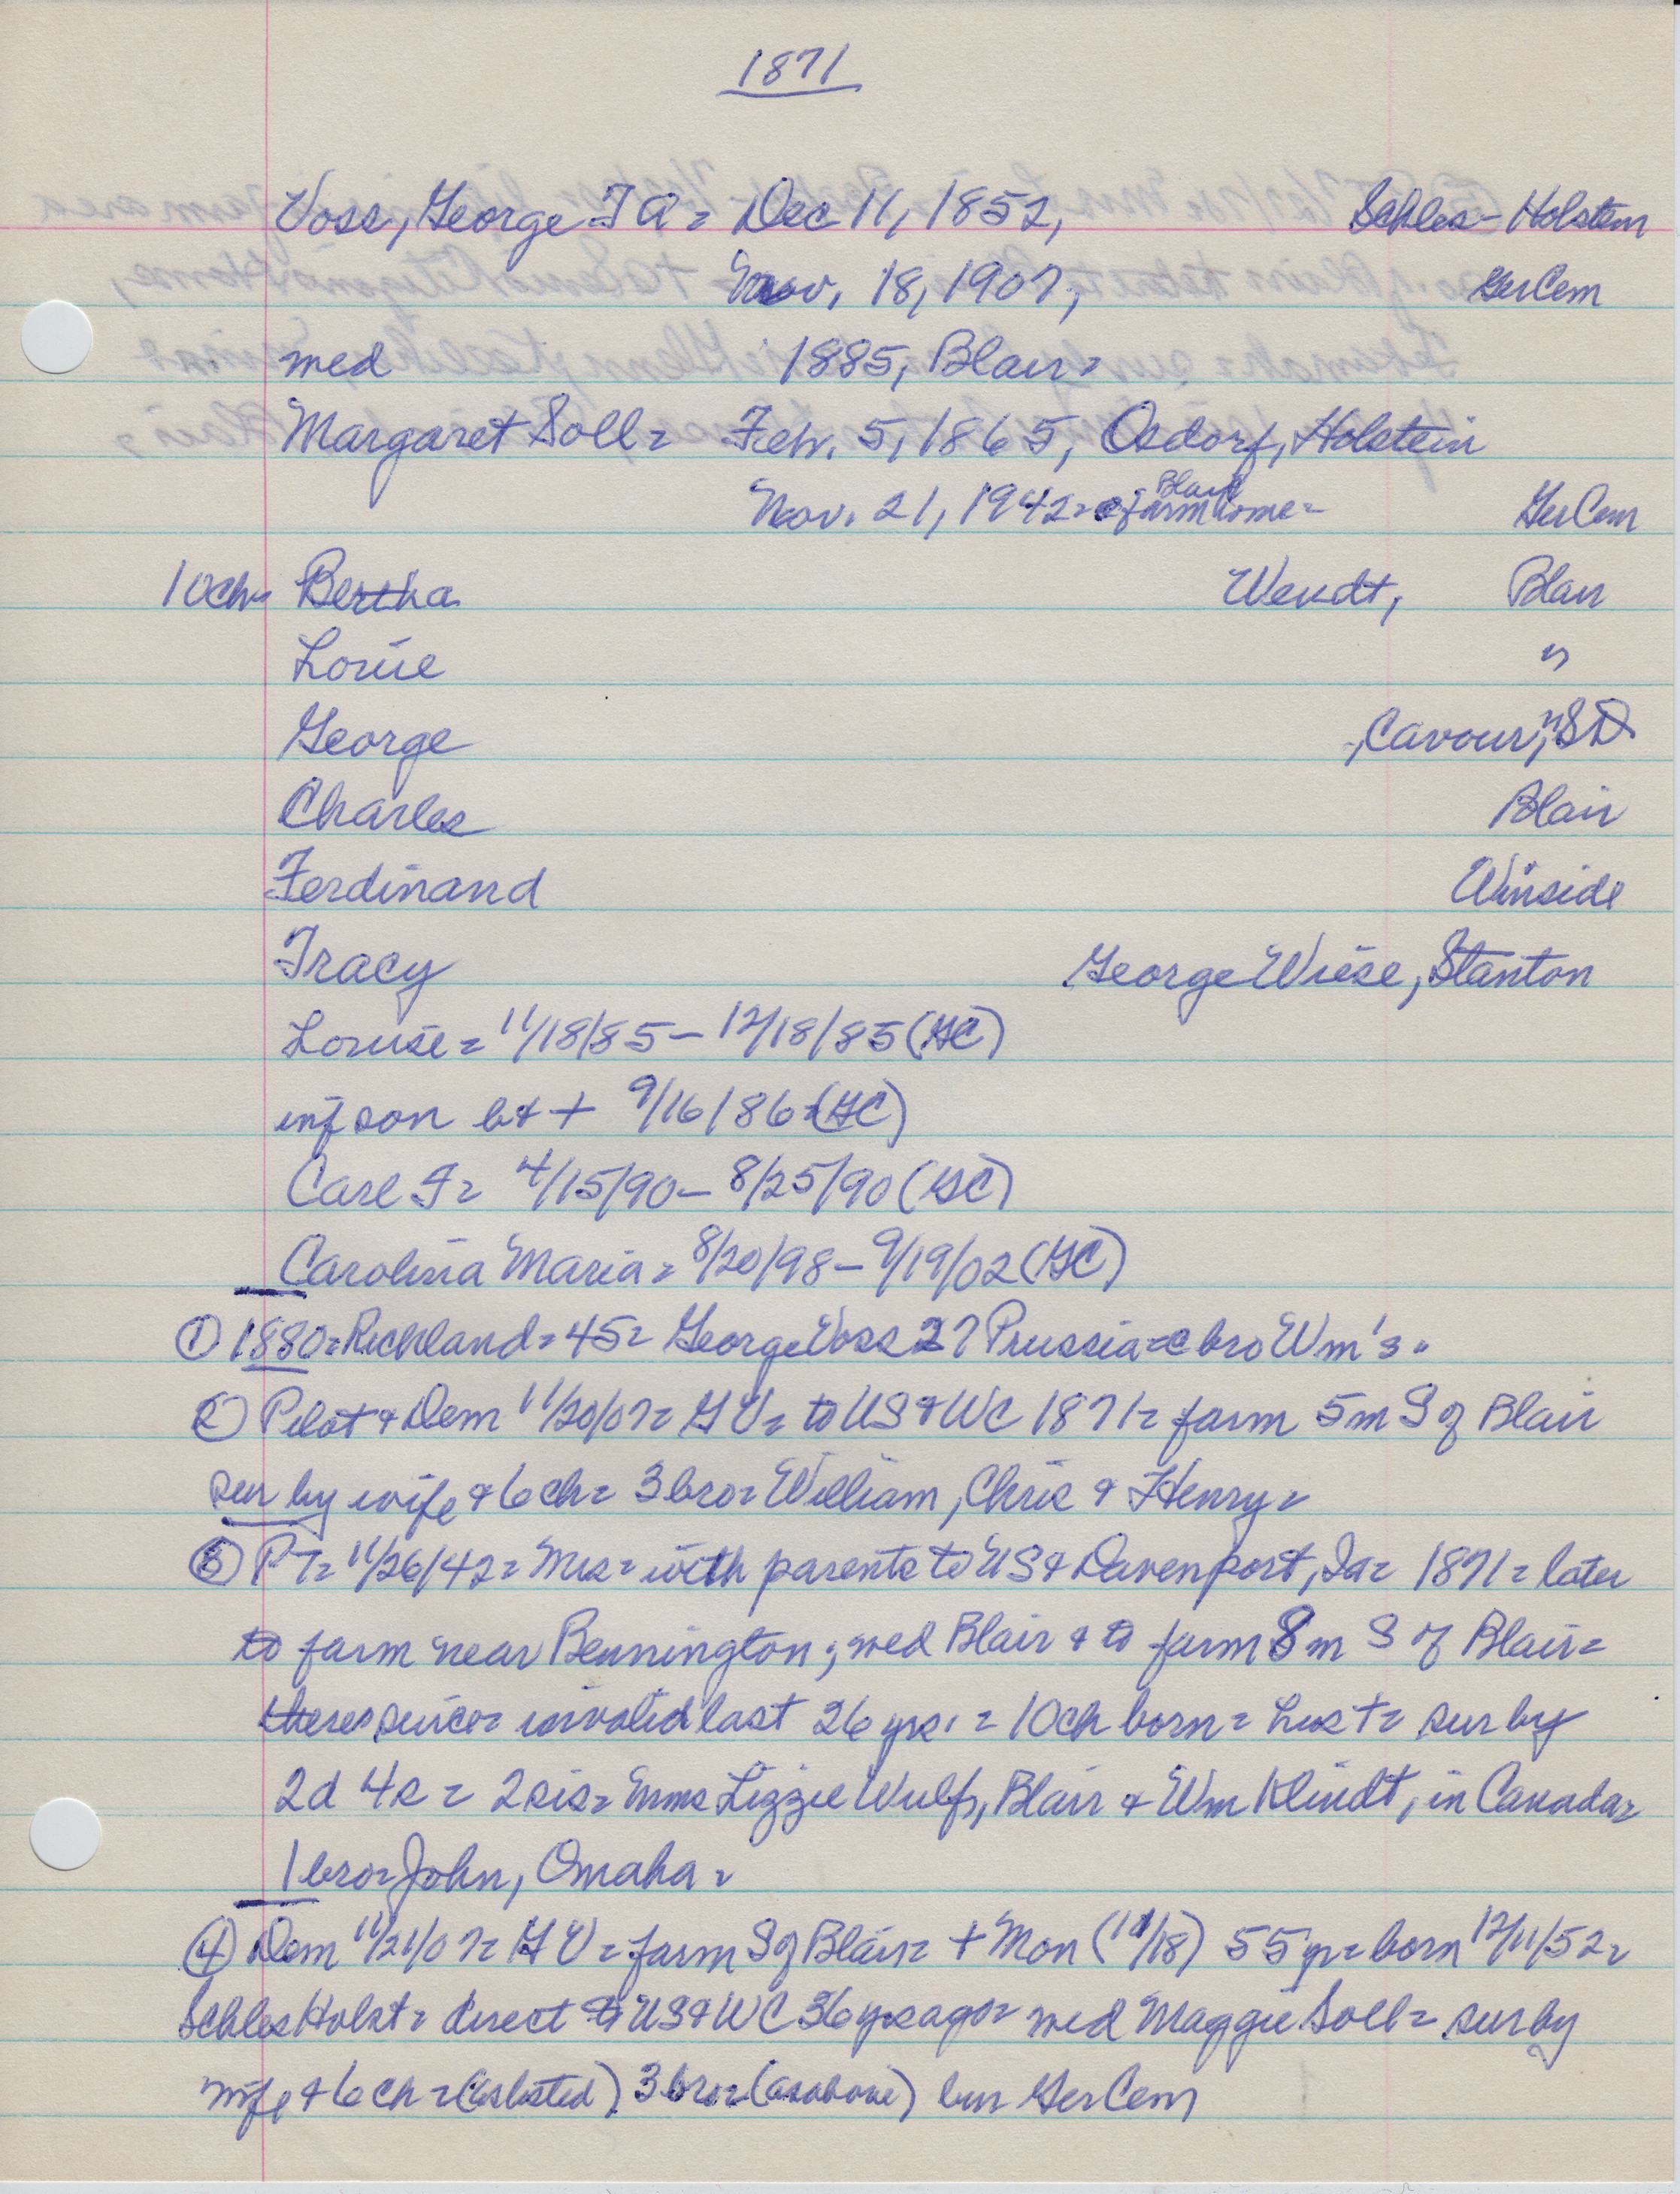 1871
Voss, George F A = Dec 11, 1852, Schles-Holstein
Nov. 18, 1907, GerCem
med 1885, Blair =
Margaret Soll = Feb. 5, 1865, Osdorf, Holstein
Blair
Nov. 21, 1942 = farm home = GerCem
10ch = Bertha Wendt, Blair
Louie "
George , Cavour, SD
Charles Blair
Ferdinand Winside
Tracy George Wiese, Stanton
Louise = 11/18/85 - 12/18/85 (GC)
inf son b & + 9/16/86 = (GC)
Carl F = 4/15/90 - 8/25/90 (GC)
Carolina Maria = 8/20/98 - 9/19/02 (GC)
① 1880 = Richland = 45 = George Voss 27 Prussia = c bro Wm's =
② Pilot & Dem 11/20/07 = G V = to US & WC 1871 = farm 5m S of Blair
sur by wife & 6 ch = 3 bro = William, Chris & Henry =
③ PT = 11/26/42 = Mrs = with parents to US & Davenport, Ia = 1871 = later
to farm near Bennington; med Blair & to farm 8m S of Blair =
there since = invalid last 26 yrs. = 10 ch born = hus + = sur by
2d 4s = 2 sis = Mmes Lizzie Wulf, Blair & Wm Klindt, in Canada =
1 bro = John, Omaha =
④ Dem 11/21/07 = G V = farm S of Blair = + Mon (11/18) 55 yr = born 12/11/52 =
Schles Holst = direct to US & WC 36 yrs ago = med Maggie Soll = sur by
wife & 6 ch = (as listed) 3 bro = (as above) bur GerCem